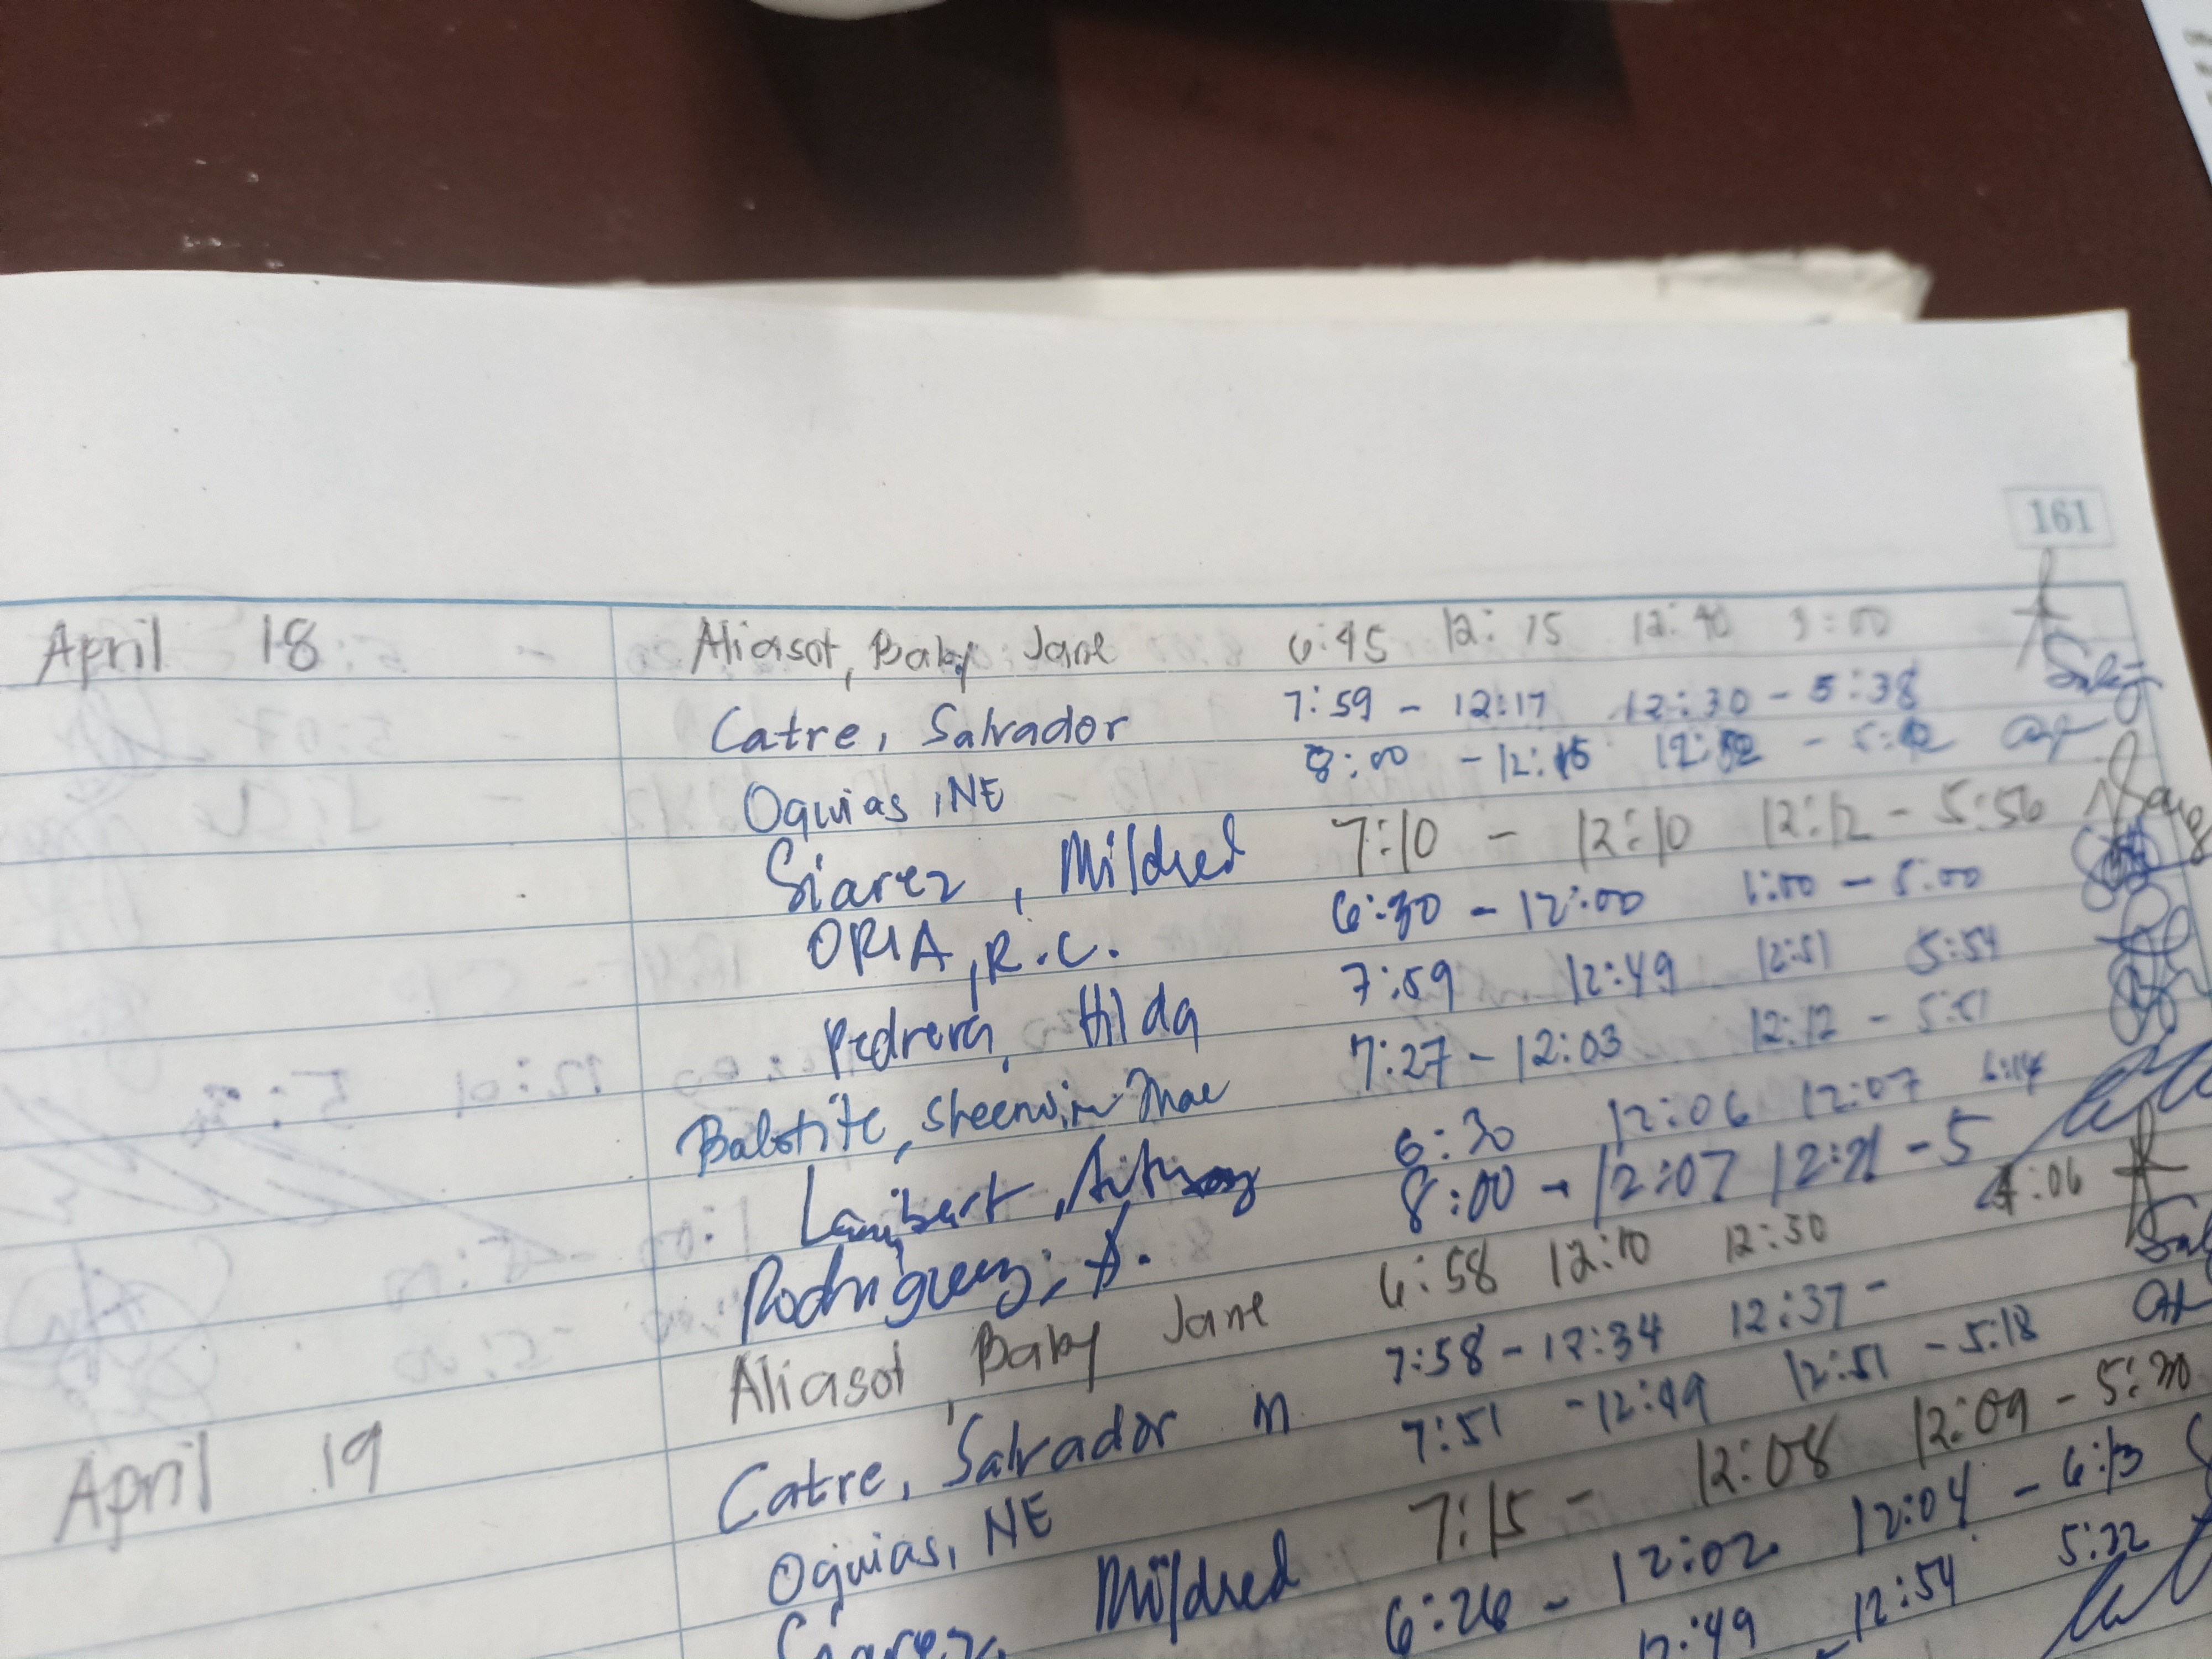 161
April 18 Aliasot, Baby Jane 6:45 12:15 12:40 3:00
Catre, Salvador 7:59 - 12:17 12:30 - 5:38
Oquias, NE 8:00 - 12:15
Siarez, Mildred 7:10 - 12:10 12:12 - 5:56
ORIA, R.C. 6:30 - 12:00 1:00 - 5:00
Pedrera, Hilda 7:59 12:49 12:51 5:54
Balotite, Sheenvin Mae 7:27 - 12:03 12:12 - 5:51
Lambert, Anthony 6:30 12:06 12:07 6:14
Rodriguez, A. 8:00 - 12:07 12:21 - 5
April 19 Aliasot, Baby Jane 6:58 12:10 12:30 4:06
Catre, Salvador M 7:58 - 12:34 12:37 -
Oquias, NE 7:51 - 12:49 12:51 - 5:18
Siarez, Mildred 7:15 - 12:08 12:09 - 5:30
6:26 - 12:02 12:04 - 6:13
12:49 12:54 5:22